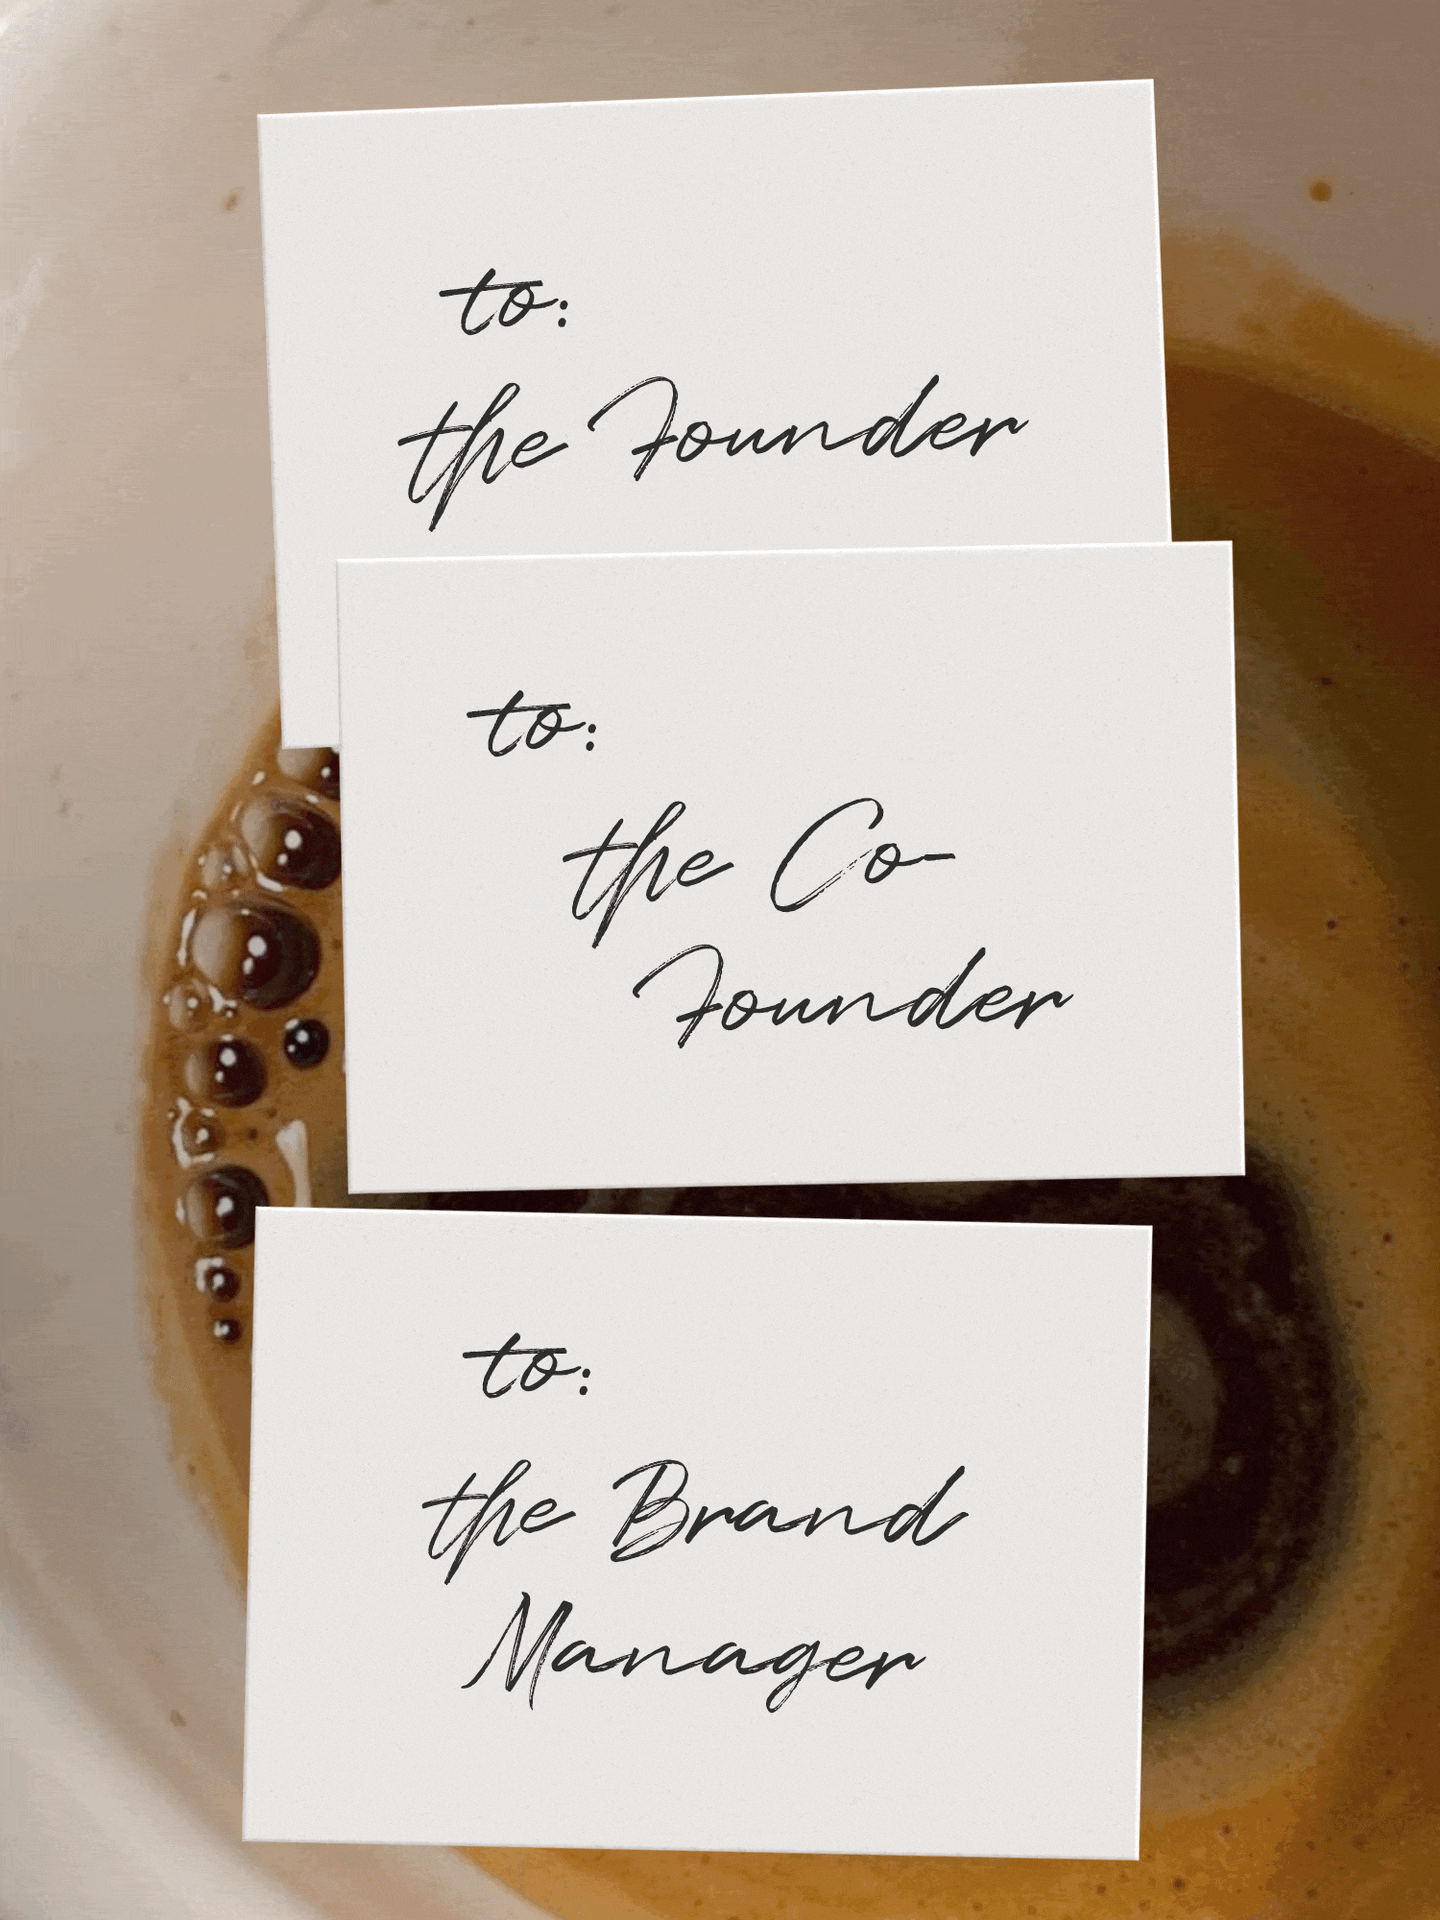 to:
the Founder
to:
the Co-
Founder
to:
the Brand
Manager